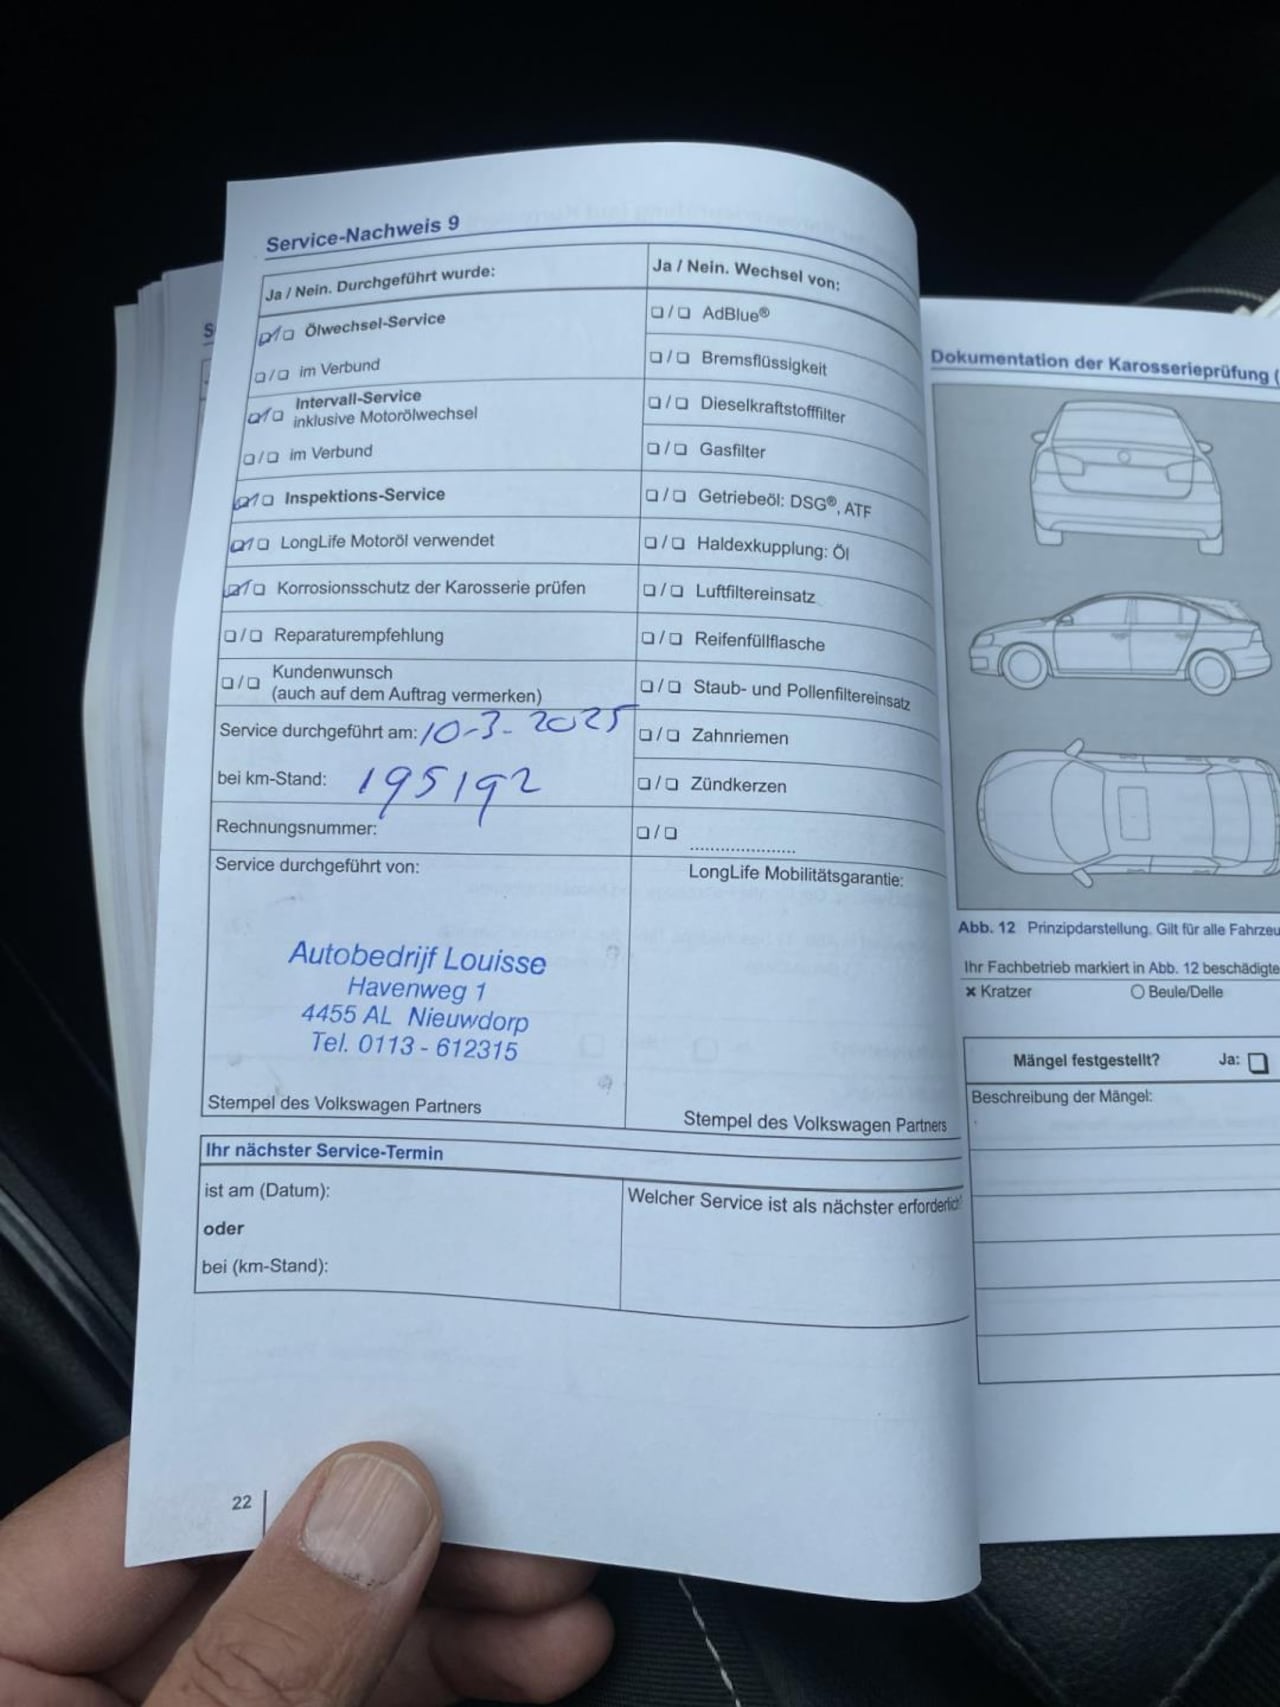 Service-Nachweis 9
Ja / Nein. Durchgeführt wurde:
☑/☐ Ölwechsel-Service
☐/☐ im Verbund
☑/☐ Intervall-Service
inklusive Motorölwechsel
☐/☐ im Verbund
☑/☐ Inspektions-Service
☑/☐ LongLife Motoröl verwendet
☑/☐ Korrosionsschutz der Karosserie prüfen
☐/☐ Reparaturempfehlung
☐/☐ Kundenwunsch
(auch auf dem Auftrag vermerken)
Service durchgeführt am: 10-3-2025
bei km-Stand: 195192
Rechnungsnummer:
Service durchgeführt von:
Autobedrijf Louisse
Havenweg 1
4455 AL Nieuwdorp
Tel. 0113 - 612315
Stempel des Volkswagen Partners
Ja / Nein. Wechsel von:
☐/☐ AdBlue®
☐/☐ Bremsflüssigkeit
☐/☐ Dieselkraftstofffilter
☐/☐ Gasfilter
☐/☐ Getriebeöl: DSG®, ATF
☐/☐ Haldexkupplung: Öl
☐/☐ Luftfiltereinsatz
☐/☐ Reifenfüllflasche
☐/☐ Staub- und Pollenfiltereinsatz
☐/☐ Zahnriemen
☐/☐ Zündkerzen
☐/☐ .....................
LongLife Mobilitätsgarantie:
Stempel des Volkswagen Partners
Ihr nächster Service-Termin
ist am (Datum):
oder
bei (km-Stand):
Welcher Service ist als nächster erforderlich
22
Dokumentation der Karosserieprüfung (
Abb. 12 Prinzipdarstellung. Gilt für alle Fahrzeu
Ihr Fachbetrieb markiert in Abb. 12 beschädigte
× Kratzer ○ Beule/Delle
Mängel festgestellt? Ja: ☐
Beschreibung der Mängel: